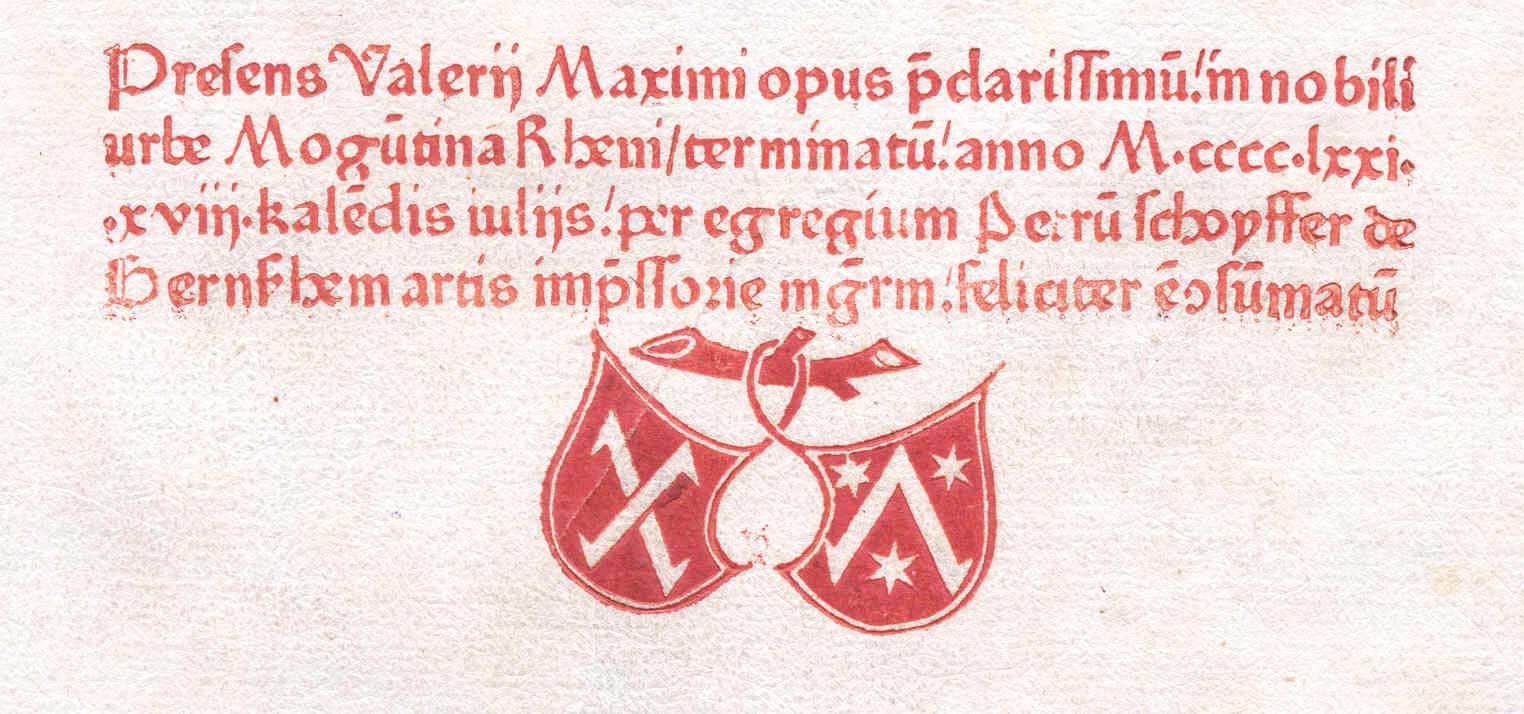 Preſens Valerij Maximi opus p̄clariſſimū / in nobili
urbe Mogūtina Rheni / terminatū / anno M·cccc·lxxi·
·xviij·kalēdis iulijs / per egregium Petrū ſchoyffer de
Gernſhem artis imp̄ſſorie mḡrm / feliciter ē ↄſūmatū